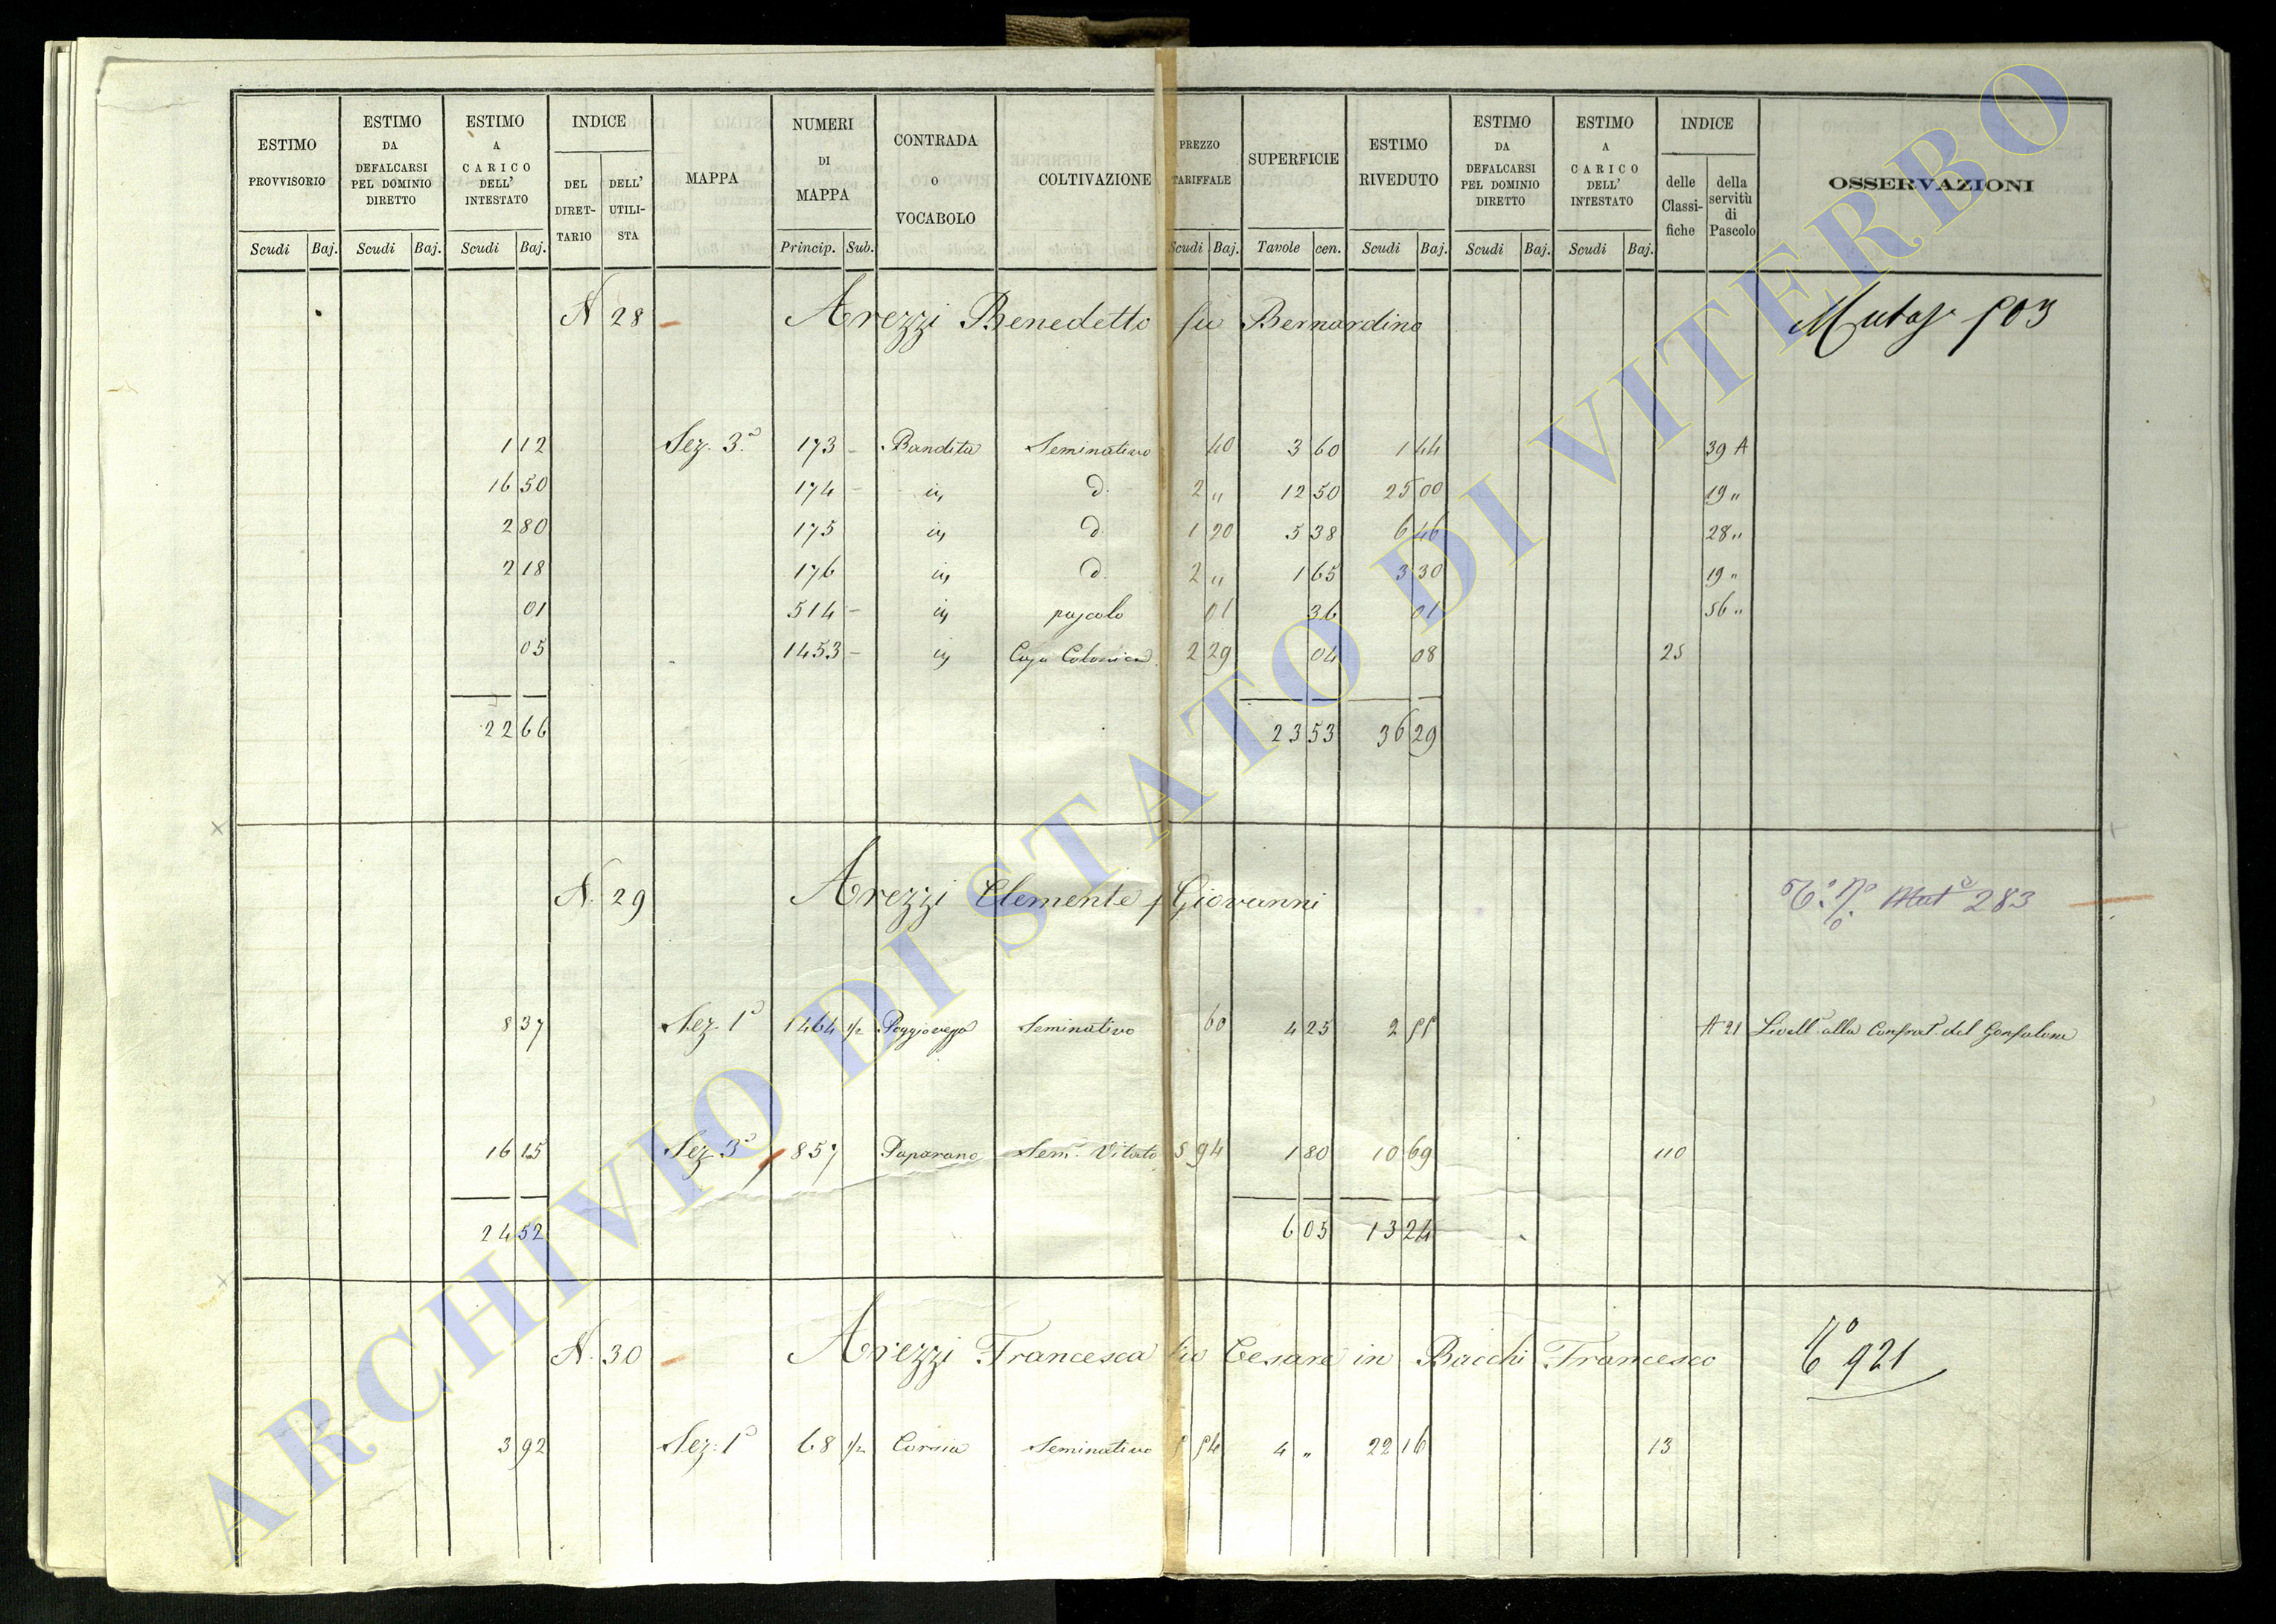 ESTIMO PROVVISORIO | ESTIMO DA DEFALCARSI PEL DOMINIO DIRETTO | ESTIMO A CARICO DELL' INTESTATO | INDICE DEL DIRETTARIO | DELL' UTILISTA | MAPPA | NUMERI DI MAPPA | CONTRADA O VOCABOLO | COLTIVAZIONE | PREZZO TARIFFALE | SUPERFICIE | ESTIMO RIVEDUTO | ESTIMO DA DEFALCARSI PEL DOMINIO DIRETTO | ESTIMO A CARICO DELL' INTESTATO | INDICE delle Classifiche | della servitù di Pascolo | OSSERVAZIONI
Scudi Baj. Scudi Baj. Scudi Baj. Princip. Sub. Scudi Baj. Tavole cen. Scudi Baj. Scudi Baj. Scudi Baj.
N 28 Arezzi Benedetto fu Bernardino 503
1 12 Sez. 3ª 173 Bandita Seminativo 40 3 60 1 44 39 A
16 50 174 d. 2 " 12 50 25 00 19 "
2 80 175 d. 1 20 5 38 6 46 28 "
2 18 176 d. 2 " 1 65 3 30 19 "
01 514 pascolo 01 36 01 56 "
05 1453 Casa Colonica 2 29 04 08 25
22 66 23 53 36 29
N. 29 Arezzi Clemente f Giovanni 283
8 37 Sez. 1ª 1464 1/2 Seminativo 60 4 25 2 55 A 21 Livell. alla Confrat. del Gonfalone
16 15 Sez. 3ª 857 Paparano Sem. Vitato 5 94 1 80 10 69 110
24 52 6 05 13 24
N. 30 Arezzi Francesca fu Cesare in Bacchi Francesco 921
3 92 Sez. 1ª 68 1/2 Seminativo 5 54 4 " 22 16 13
ARCHIVIO DI STATO DI VITERBO